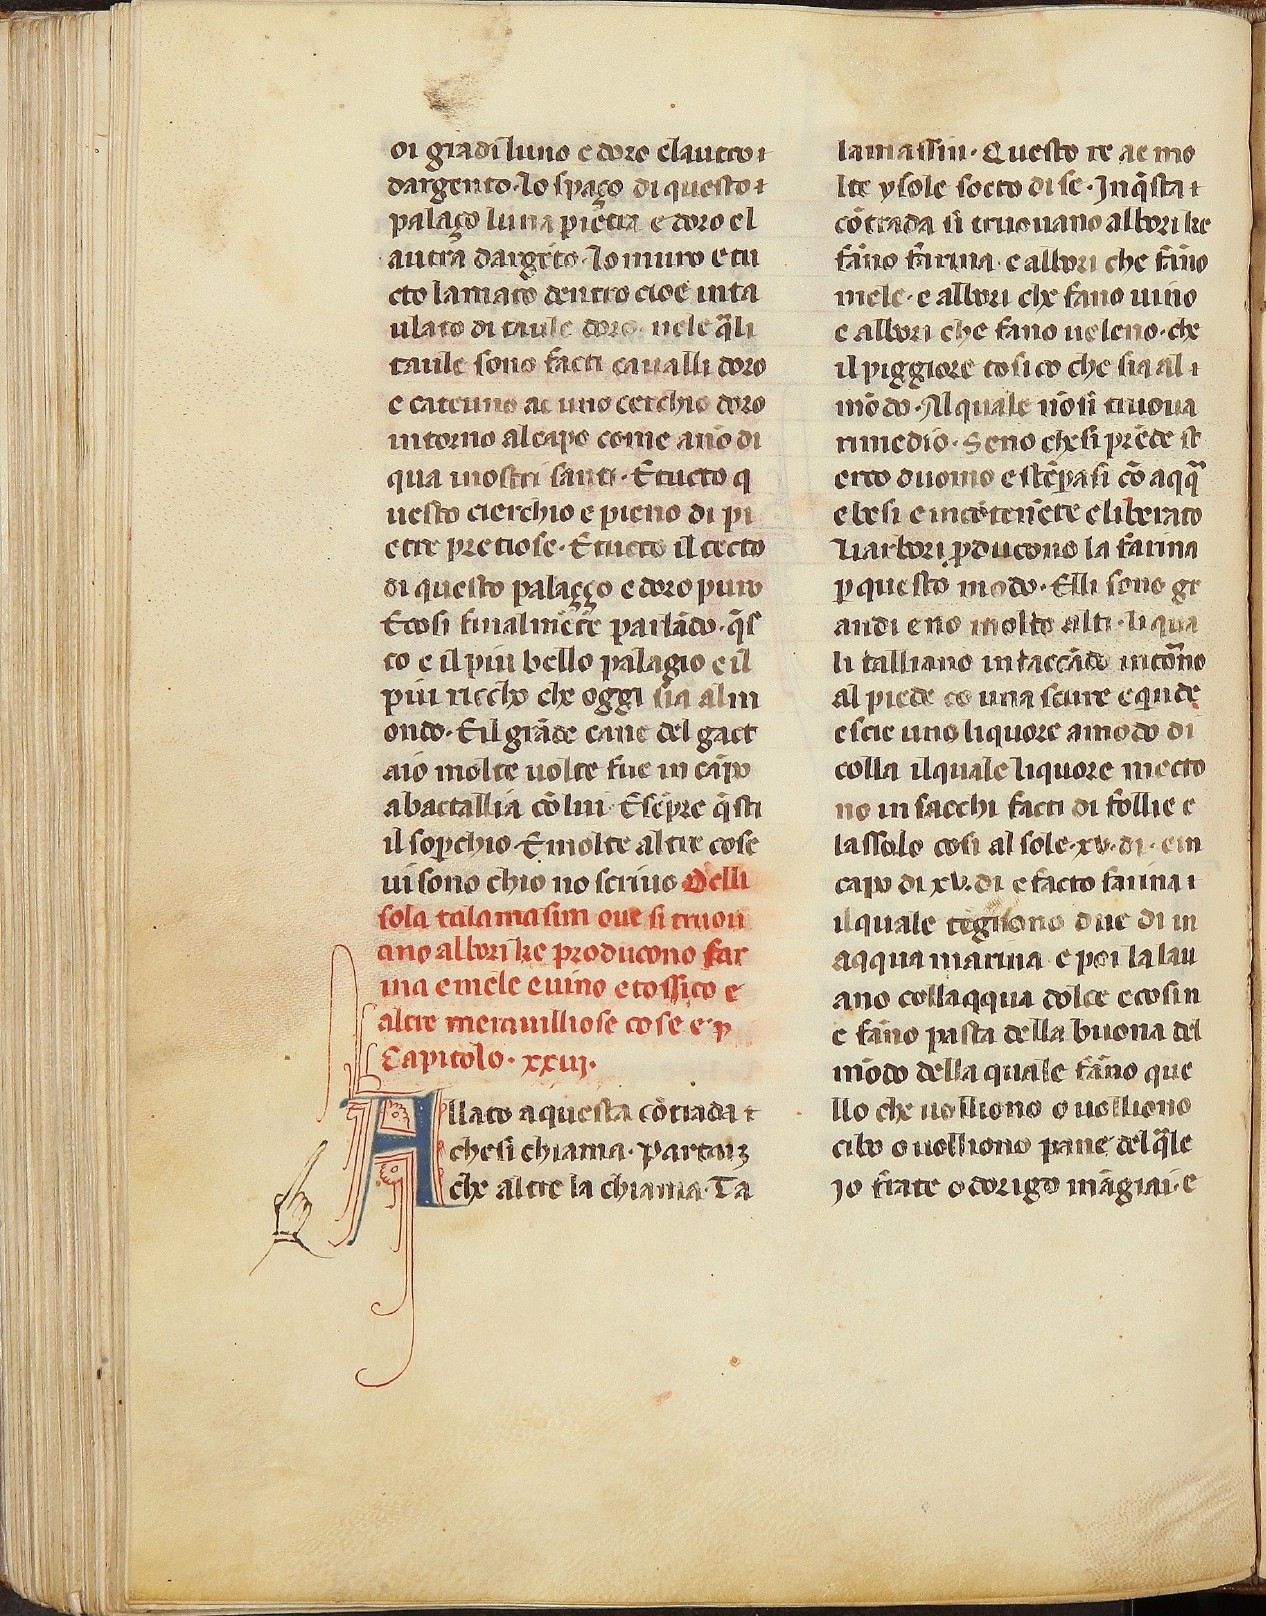 oi gradi luno e doro elautro ⁊
dargento. lo spaço di questo ⁊
palaço luna piētra e doro el
autra dargēto. lo muro e tu
cto lamato dentro cioe inta
ulato di taule doro. nele q̄li
taule sono facti caualli doro
e catcuno ac uno cerchio doro
intorno al capo come ano di
qua nostri santi. E tucto q
uesto cierchio e pieno di pi
etre pretiose. E tucto il tecto
di questo palaçço e doro puro
Ecosi finalmēte parlādo. q̄s
to e il piu bello palagio e il
piu riccho che oggi sia al m
ondo. E il grāde cane del gact
aio molte uolte fue in cāpo
a bactallia cō lui. E sēpre q̄sti
il soꝑchio. E molte altre cose
ui sono chio no scriuo Delli
sola talamasim oue si truou
ano albori ke producono far
ina e mele e uino e tossico e
altre merauilliose cose e ꝑ
Capitolo. xxiij.
Allato a questa cōtrada ⁊
che si chiama. Partaiz
che altre la chiama. Ta
lamassin. Questo re ac mo
lte ysole socto di se. In q̄sta ⁊
cōtrada si truouano albori ke
fāno farina. e albori che fāno
mele. e albori che fano uino
e albori che fano ueleno. che
il piggiore tosico che sia al ⁊
mōdo. Al quale nō si truoua
rimedio. Seno che si prēde st
erco duomo e stēpasi cō aqq̄
e besi e incōtenēte e liberato
Li arbori ꝓducono la farina
ꝑ questo modo. Elli sono gr
andi e no molto alti. li qua
li talliano intaccādo intōno
al piede co una scure e quide
escie uno liquore a modo di
colla il quale liquore mecto
no in sacchi facti di follie e
lassolo cosi al sole. xv. di. e in
capo di xv. di e facto farina ⁊
il quale tēgnono due di in
aqqua marina e poi la lau
ano coll aqqua dolce e cosin
e fāno pasta della buona del
mōdo della quale fāno que
llo che uolliono o uolliono
cibo o uolliono pane del q̄le
Jo frate odorigo māgiai. e